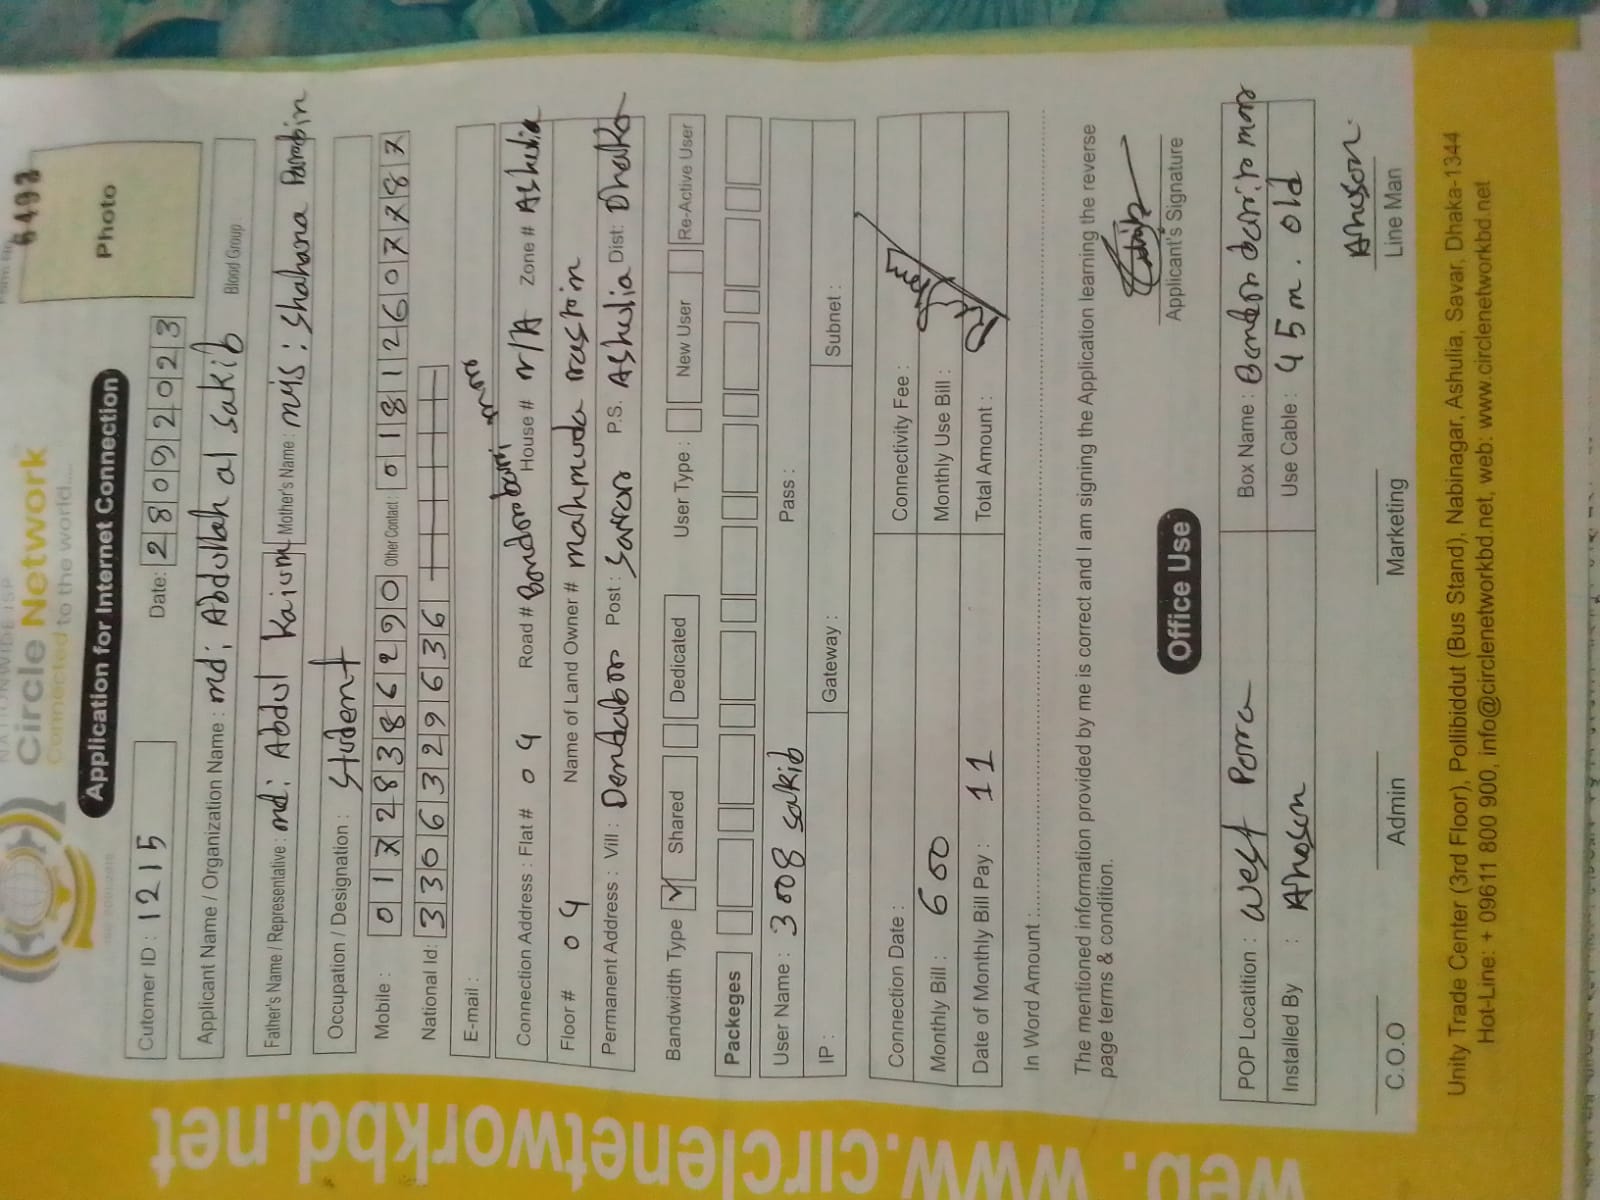 6493
NATIONWIDE ISP
Circle Network
Connected to the world....
Photo
Application for Internet Connection
Cutomer ID : 1215 Date: 28092023
Applicant Name / Organization Name : md: Abdullah al sakib Blood Group
Father's Name / Representative : md: Abdul Kaium Mother's Name : mis : Shahana Parabin
Occupation / Designation : Student
Mobile : 01728386290 Other Contact: 01812607787
National Id: 3306329636
E-mail :
Connection Address : Flat # 04 Road # Bondombari House # n/A Zone # Ashulia
Floor # 04 Name of Land Owner # mahmuda
Permanent Address : Vill : Dendabor Post : Savar P.S. Ashulia Dist: Dhaka
Bandwidth Type Shared Dedicated User Type : New User Re-Active User
Packeges
User Name : 3008 sakib Pass :
IP : Gateway : Subnet :
Connection Date : Connectivity Fee :
Monthly Bill : 600 Monthly Use Bill :
Date of Monthly Bill Pay : 11 Total Amount :
In Word Amount :
The mentioned information provided by me is correct and I am signing the Application learning the reverse
page terms & condition.
Applicant's Signature
Office Use
POP Locatition : West Para Box Name :
Installed By : Ahoson Use Cable : 45 m. old
Ahoson
C.O.O Admin Marketing Line Man
Unity Trade Center (3rd Floor), Pollibiddut (Bus Stand), Nabinagar, Ashulia, Savar, Dhaka-1344
Hot-Line: + 09611 800 900, info@circlenetworkbd.net, web: www.circlenetworkbd.net
web. www.circlenetworkbd.net